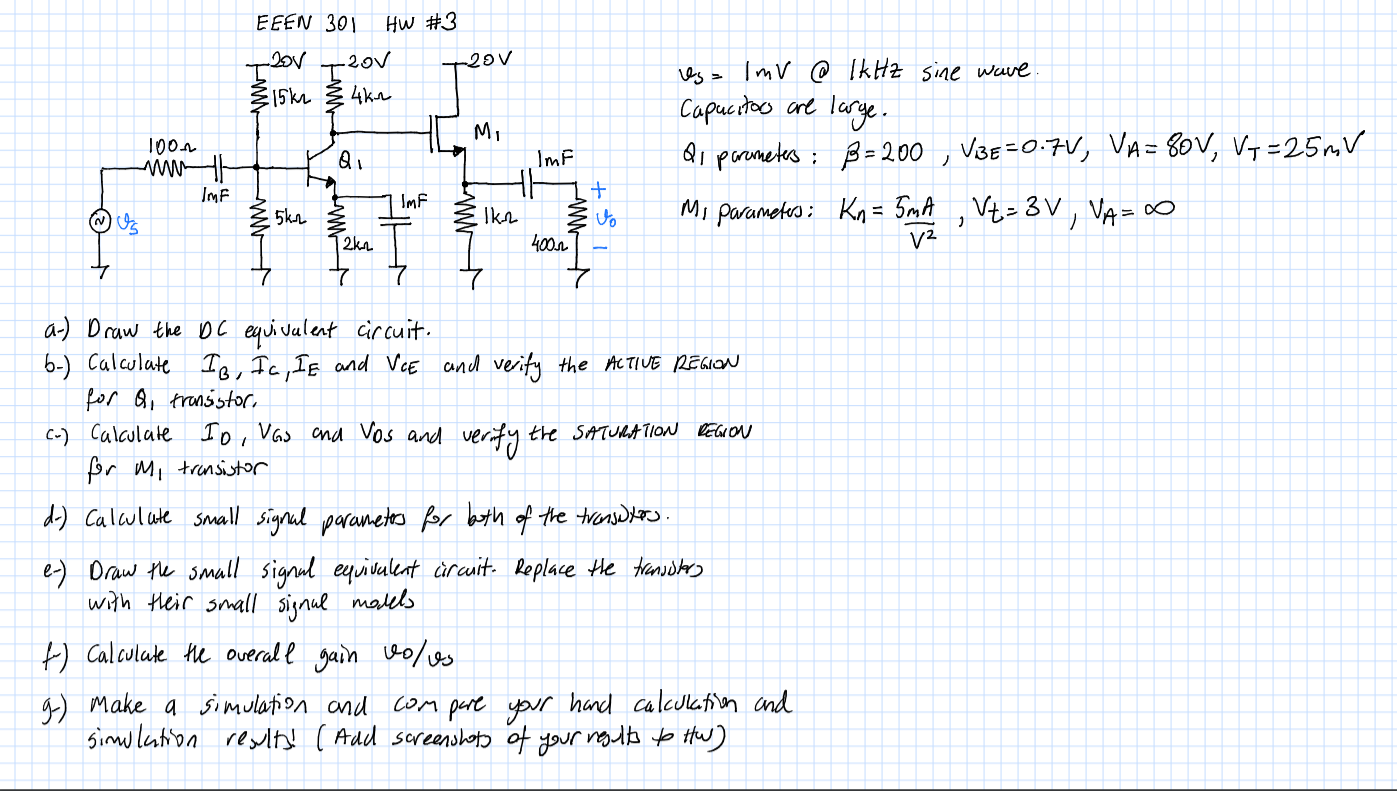 EEEN 301 HW #3
20V 20V 20V
15kΩ 4kΩ
100Ω Q1 M1
1mF 1mF 1mF
vs 5kΩ 2kΩ 1kΩ 400Ω + vo -
vs = 1mV @ 1kHz sine wave.
Capacitors are large.
Q1 parameters : β=200 , VBE=0.7V, VA=80V, VT=25mV
M1 parameters: Kn= 5mA/V² , Vt=3V, VA=∞
a-) Draw the DC equivalent circuit.
b-) Calculate IB, IC, IE and VCE and verify the ACTIVE REGION
for Q1 transistor.
c-) Calculate ID, VGS and VDS and verify the SATURATION REGION
for M1 transistor
d-) Calculate small signal parameters for both of the transistors.
e-) Draw the small signal equivalent circuit. Replace the transistors
with their small signal models
f-) Calculate the overall gain vo/vs
g-) Make a simulation and compare your hand calculation and
simulation results! (Add screenshots of your results to HW)